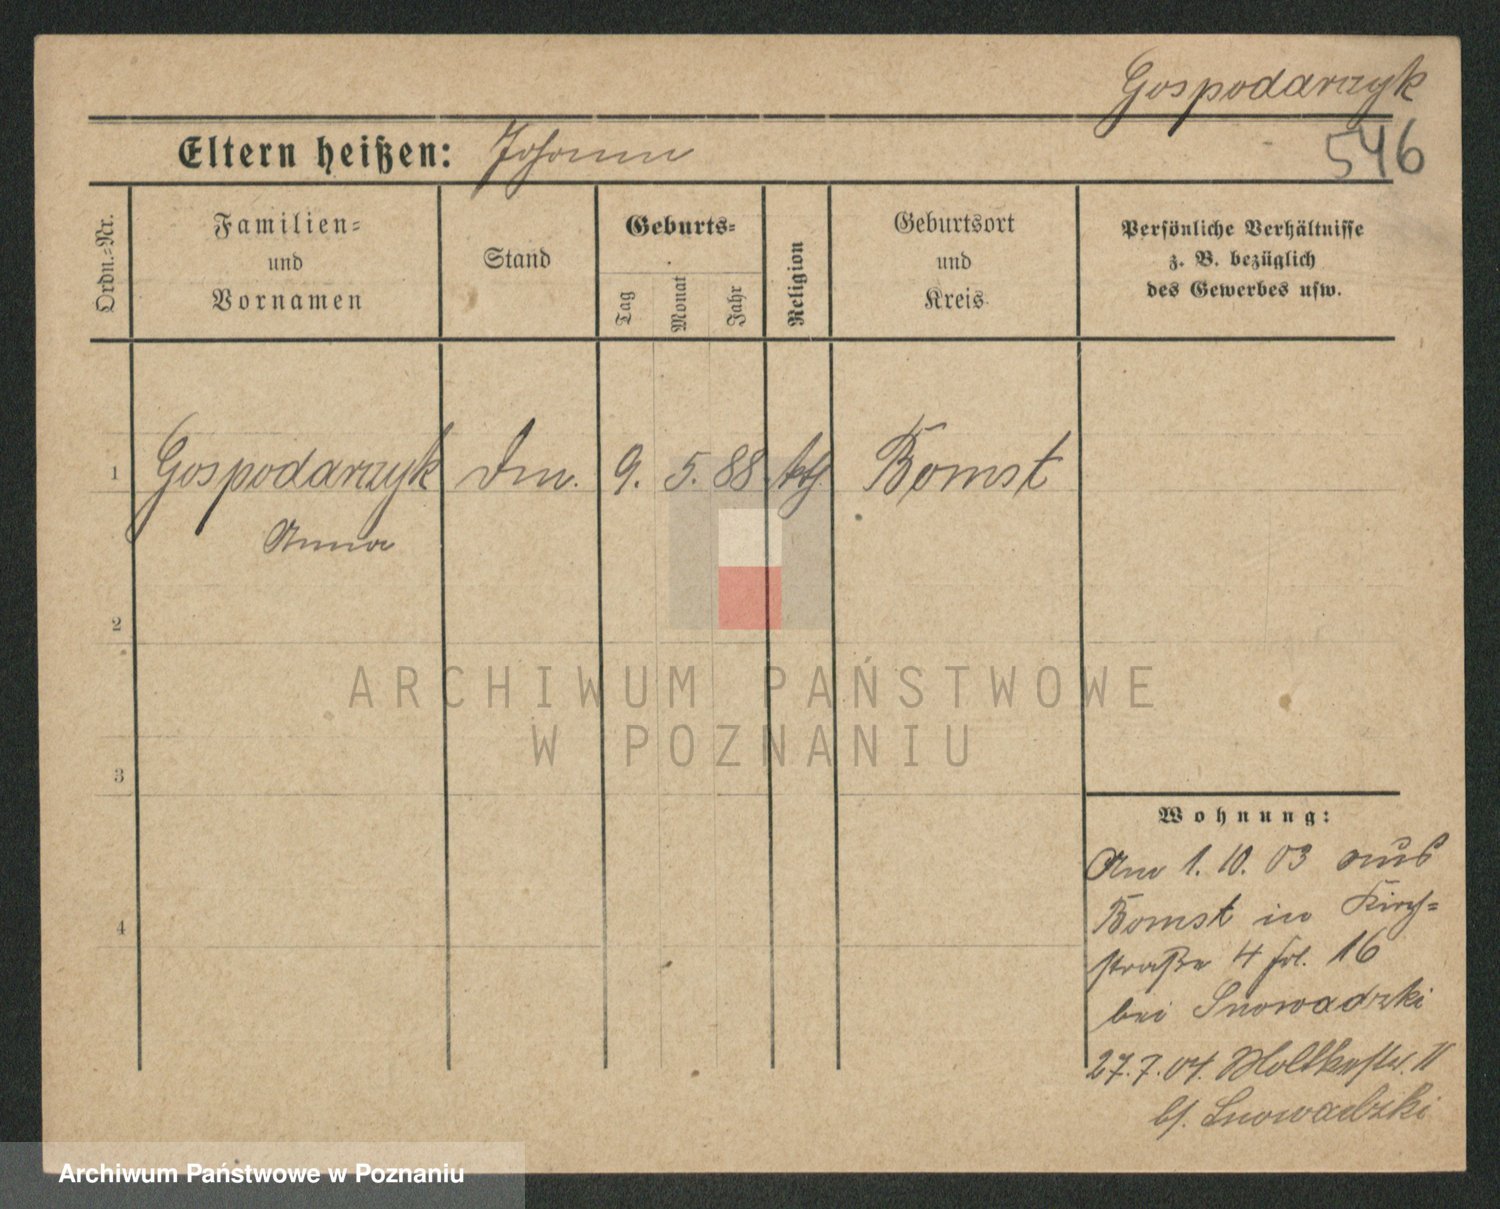 Gospodarczyk
546
Eltern heißen: Johann
Ordn.-Nr.
Familien-
und
Vornamen
Stand
Geburts-
Tag
Monat
Jahr
Religion
Geburtsort
und
Kreis
Persönliche Verhältnisse
z. B. bezüglich
des Gewerbes usw.
1 Gospodarczyk Dm. 9. 5. 88 kth Bomst
Anna
2
ARCHIWUM PAŃSTWOWE
W POZNANIU
3
Wohnung:
Am 1.10.03 aus
Bomst in Kirch-
4
straße 4 fol. 16
bei Snowadzki
27.7.04. Moltkestr. 11
b/. Snowadzki
Archiwum Państwowe w Poznaniu